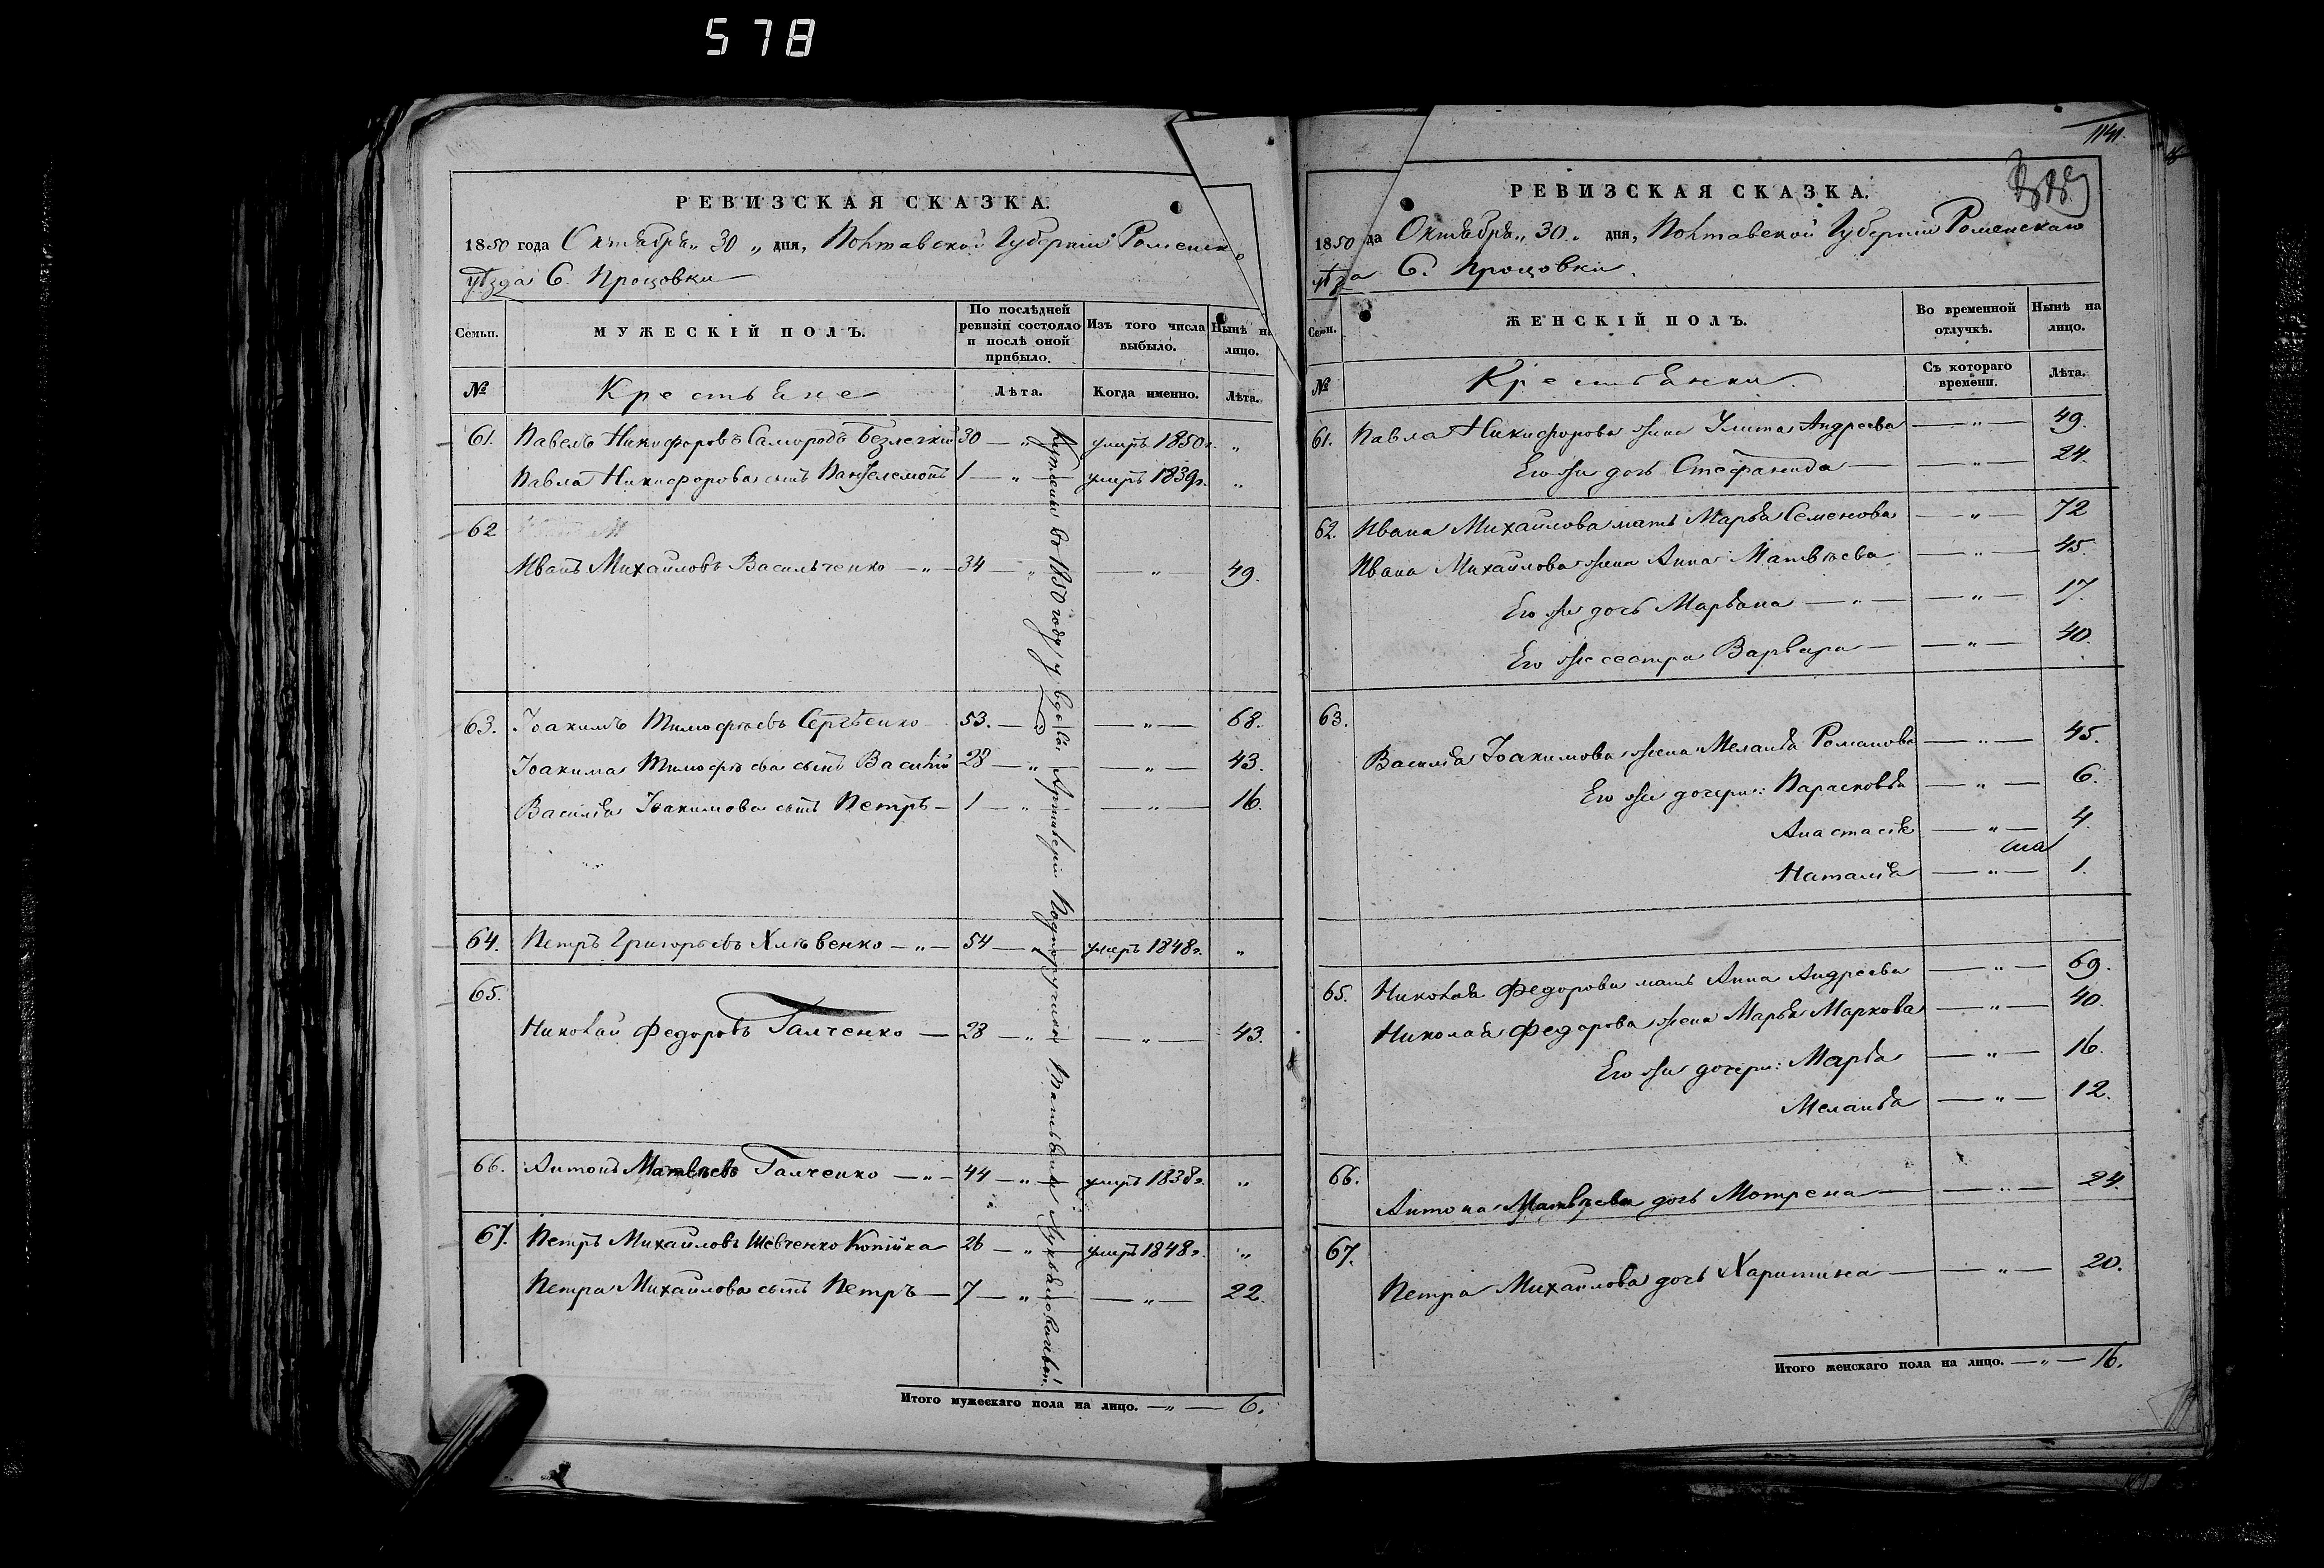 578
РЕВИЗСКАЯ СКАЗКА.
1850 года Октября „ 30 „ дня, Полтавской Губерніи Роменск
уѣзда С. Процовки
Семьи.
МУЖЕСКІЙ ПОЛЪ.
По послѣдней ревизіи состояло и послѣ оной прибыло.
Изъ того числа выбыло.
Нынѣ на лицо.
№
Крестьяне
Лѣта.
Когда именно.
Лѣта.
61. Павелъ Никифоровъ Самородъ Безлегкій 30 — „ — умеръ 1850г. „
Павла Никифорова сынъ Пантелемонъ 1 — „ — умеръ 1839г. „
62
Иванъ Михайловъ Васильченко — „ — 34 — „ — „ — 49.
63. Іоакимъ Тимофѣевъ Сергѣенко 53. — „ — „ — 68.
Іоакима Тимофѣева сынъ Василій 28 — „ — „ — 43.
Василія Іоакимова сынъ Петръ — 1 — „ — „ — 16.
64. Петръ Григорьевъ Хлѣвенко — „ — 54 — „ — умеръ 1848г. „
65.
Николай Федоровъ Галченко — 28 — „ — „ — 43.
66. Антонъ Матвѣевъ Галченко — „ — 44 — „ — умеръ 1838г. „
67. Петръ Михайловъ Шевченко Копійка 26 — „ — умеръ 1848г. „
Петра Михайлова сынъ Петръ — 7 — „ — „ — 22.
Куплены въ 1850 году у вдовы Подпоручика
Итого мужескаго пола на лицо. — „ — 6.
1141.
РЕВИЗСКАЯ СКАЗКА.
1850 да Октября „ 30 „ дня, Полтавской Губерніи Роменскаго
уѣзда С. Процовки.
Семи.
ЖЕНСКІЙ ПОЛЪ.
Во временной отлучкѣ.
Нынѣ на лицо.
№
Крестьянки.
Съ котораго времени.
Лѣта.
61. Павла Никифорова жена Улита Андреева — „ — 49.
Его же дочь Стефанида — „ — 24.
62. Ивана Михайлова мать Марья Семенова — „ — 72
Ивана Михайлова жена Анна Матвѣева — „ — 45.
Его же дочь Марьяна — „ — „ — 17.
Его же сестра Варвара — „ — 40.
63.
Василія Іоакимова жена Меланья Романова — „ — 45.
Его же дочери: Парасковья — „ — 6.
Анастасія — „ — 4.
Наталія — „ — 1.
65. Николая Федорова мать Анна Андреева — „ — 69.
Николая Федорова жена Марья Маркова — „ — 40.
Его же дочери: Марья — „ — 16.
Меланья — „ — 12.
66.
Антона Матвѣева дочь Мотрена — „ — 24.
67.
Петра Михайлова дочь Харитина — „ — 20.
Итого женскаго пола на лицо. — „ — 16.